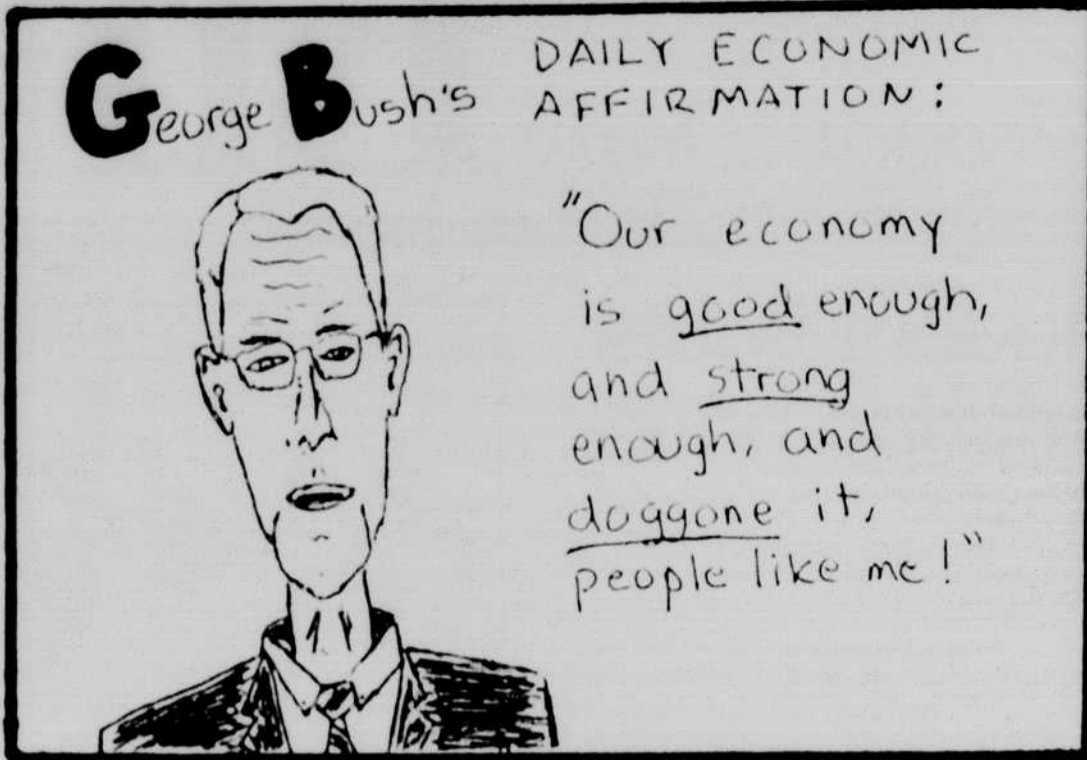 George Bush's
DAILY ECONOMIC
AFFIRMATION:
"Our economy
is good enough,
and strong
enough, and
doggone it,
people like me!"